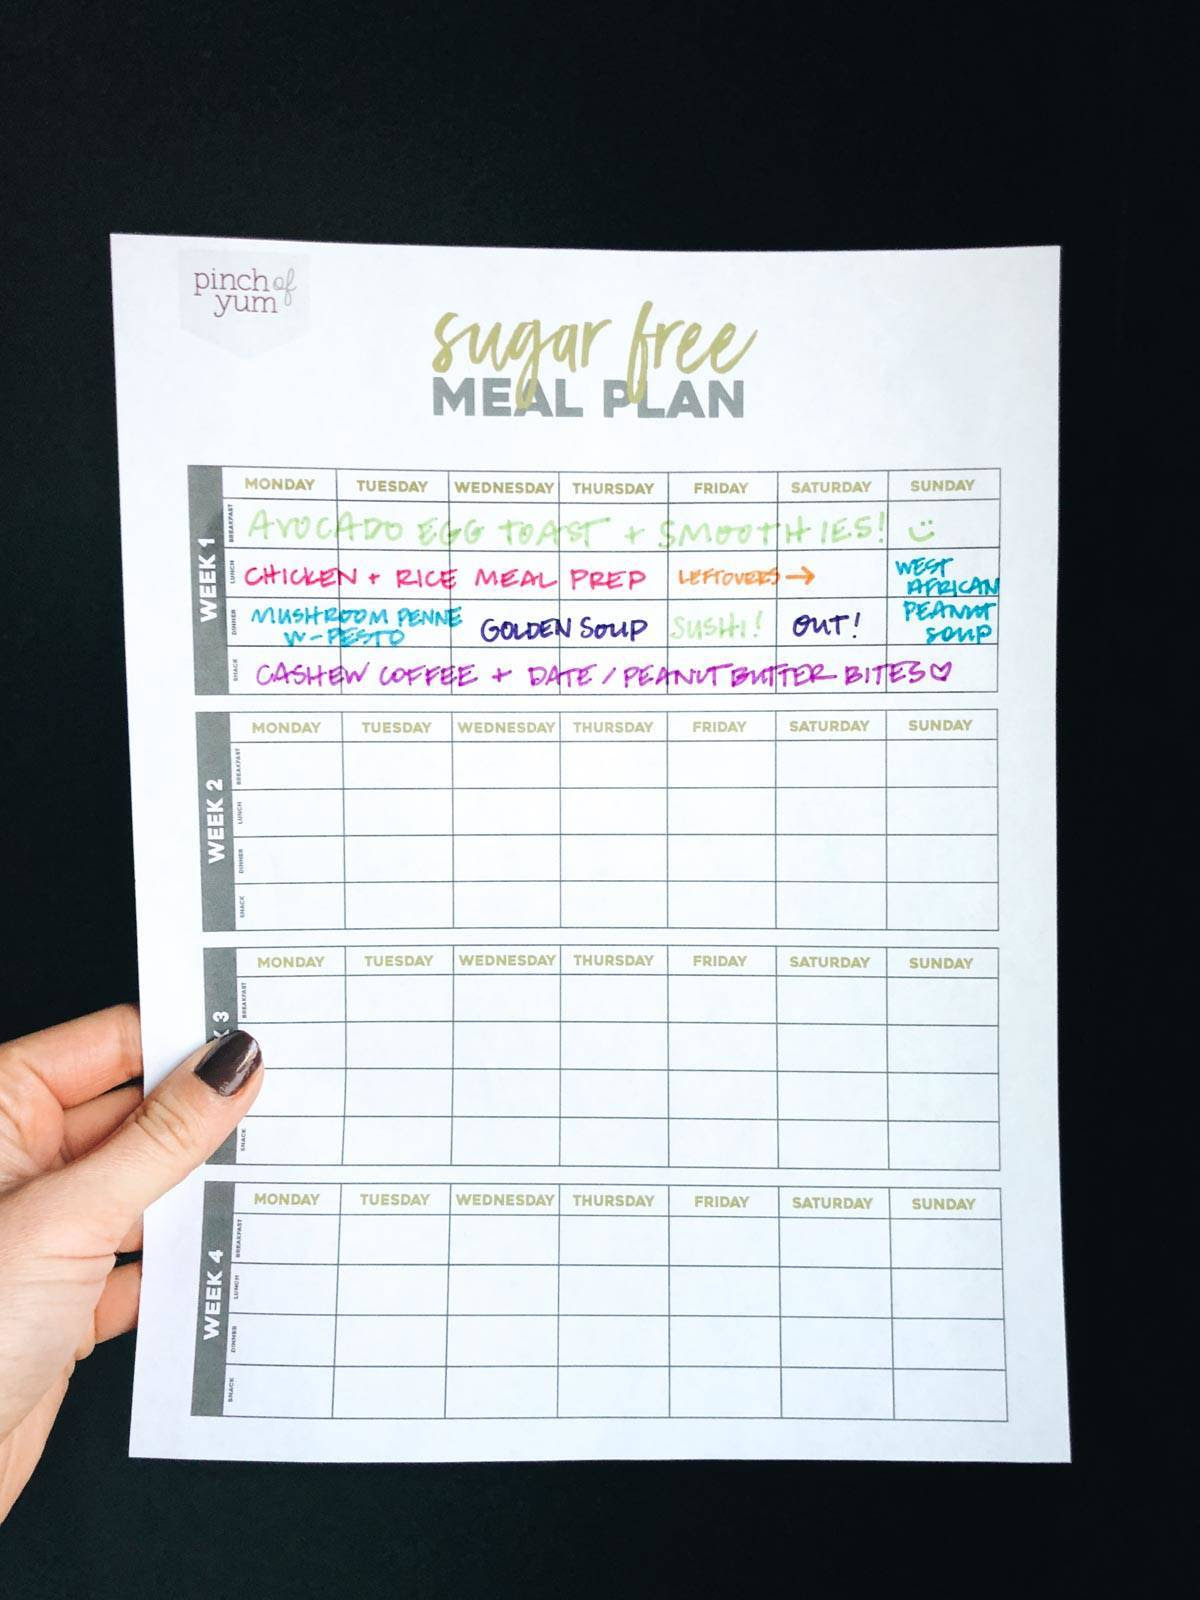 pinch of
yum
sugar free
MEAL PLAN
WEEK 1
MONDAY TUESDAY WEDNESDAY THURSDAY FRIDAY SATURDAY SUNDAY
BREAKFAST AVOCADO EGG TOAST + SMOOTHIES!
LUNCH CHICKEN + RICE MEAL PREP LEFTOVERS → WEST
AFRICAN
DINNER MUSHROOM PENNE
W-PESTO GOLDEN SOUP SUSHI! OUT! PEANUT
SOUP
SNACK CASHEW COFFEE + DATE / PEANUT BUTTER BITES♡
WEEK 2
MONDAY TUESDAY WEDNESDAY THURSDAY FRIDAY SATURDAY SUNDAY
BREAKFAST
LUNCH
DINNER
SNACK
3
MONDAY TUESDAY WEDNESDAY THURSDAY FRIDAY SATURDAY SUNDAY
BREAKFAST
SNACK
WEEK 4
MONDAY TUESDAY WEDNESDAY THURSDAY FRIDAY SATURDAY SUNDAY
BREAKFAST
LUNCH
DINNER
SNACK